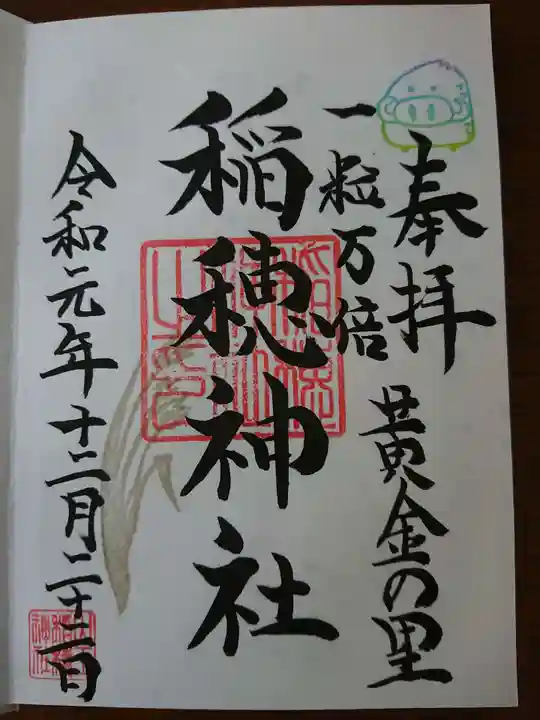 奉拝　黄金の里
一粒万倍
稲穂神社
令和元年十二月二十二日